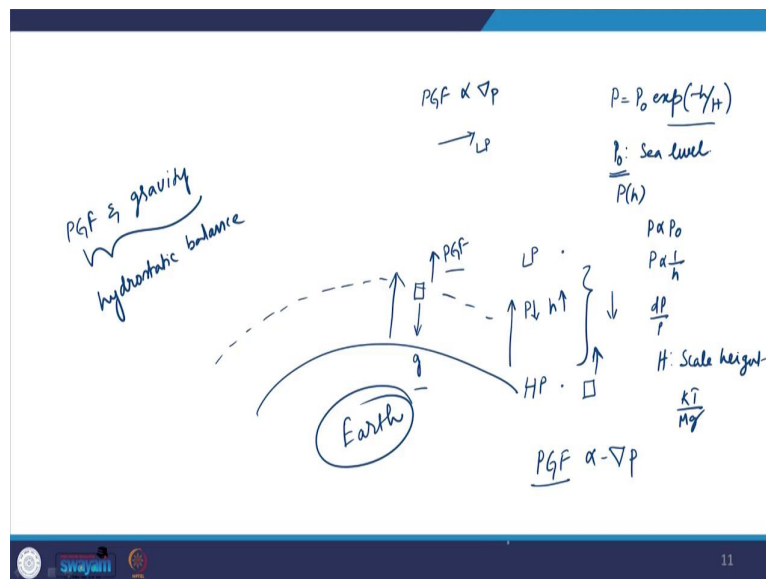 PGF ∝ ∇P
→ LP
P = P₀ exp(-h/H)
P₀: Sea level
P(h)
P ∝ P₀
P ∝ 1/h
dP/P
H: Scale height
kT/Mg
PGF & gravity
hydrostatic balance
↑ PGF
↓
g
Earth
LP
↑ P↓ h↑
HP
PGF ∝ -∇P
swayam
11